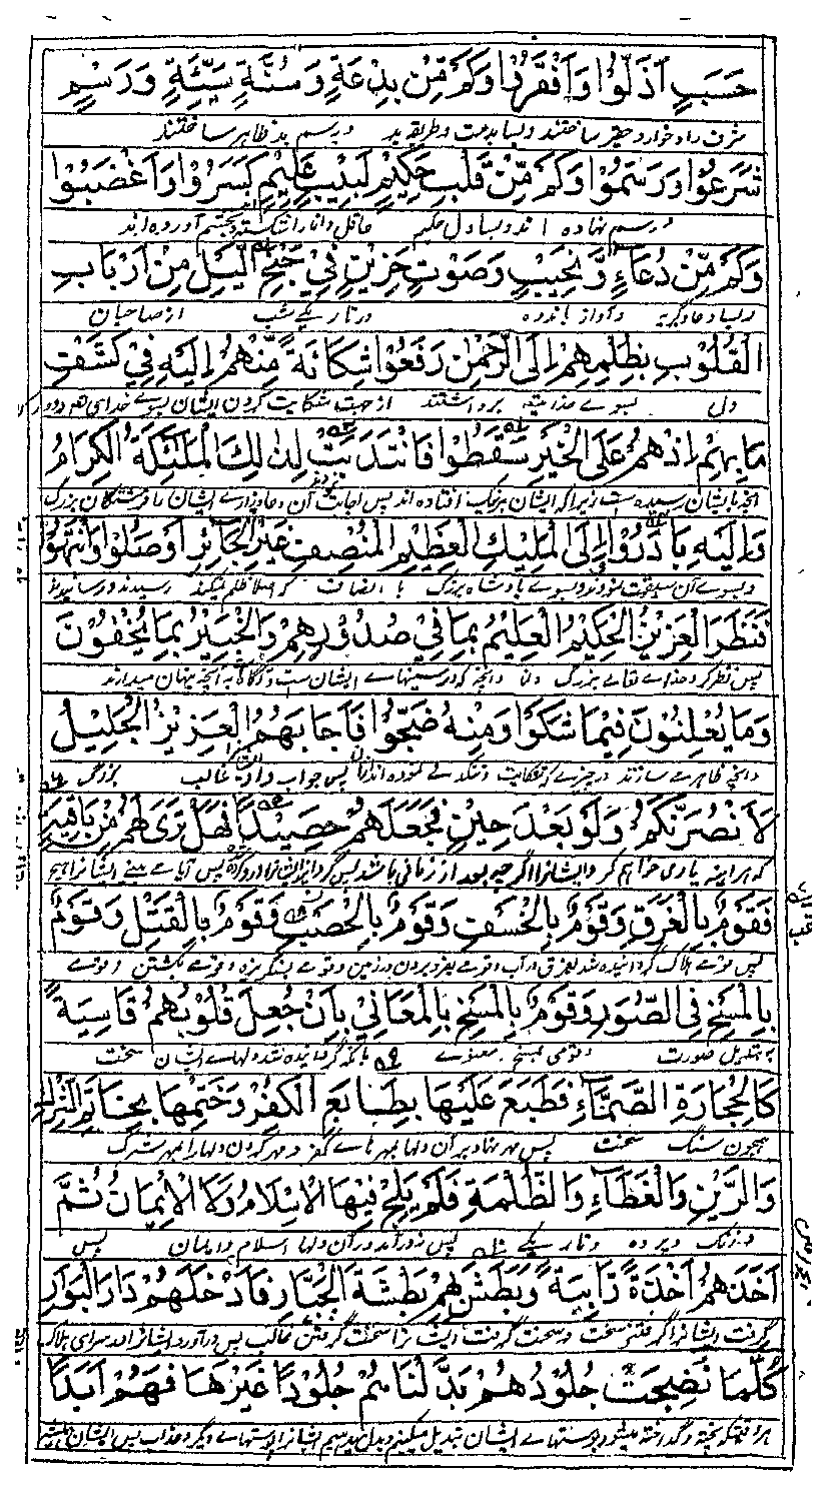 حَسَبٍ اَذَلُّوْا وَاَفْقَرُوْا وَكَمْ مِّنْ بِدْعَةٍ وَسُنَّةٍ سَيِّئَةٍ وَرَسْمٍ
شرف را و خوار و حقیر ساختند و بسا بدعت و طریقه بد و رسم بد ظاهر ساختند
شَرَعُوْا وَرَسَمُوْا وَكَمْ مِّنْ قَلْبِ حَكِيْمٍ لَبِيْبٍ عَلِيْمٍ كَسَرُوْا وَاَغْضَبُوْا
و رسم نهاده اند و بسا دل حکیم عاقل دانا را شکسته و بخشم آورده اند
وَكَمْ مِّنْ دُعَاءٍ وَّنَحِيْبٍ وَصَوْتٍ حَزِيْنٍ فِيْ جَنْحِ الَّيْلِ مِنْ اَرْبَابِ
و بسا دعا و گریه و آواز باندوه در تاریکے شب از صاحبان
الْقُلُوْبِ بِظُلْمِهِمْ اِلَى الرَّحْمٰنِ رَفَعُوْا شِكَايَةً مِّنْهُمْ اِلَيْهِ فِيْ كَشْفِ
دل بسوے خدا برداشتند از جهت شکایت کردن ایشان بسوے خدا
مَا بِهِمْ اِذْ هُمْ عَلَى الْخَيْرِ سَقَطُوْا فَانْتَدَبَتْ لِذٰلِكَ الْمَلٰئِكَةُ الْكِرَامُ
انچه بایشان رسیده است زیرا که ایشان بر نیک افتاده اند پس اجابت آن دعا و زارے ایشان را فرشتگان بزرگ
وَاِلَيْهِ بَادَرُوْا اِلَى الْمَلِيْكِ الْعَظِيْمِ الْمُنْصِفِ غَيْرِ الْجَآئِرِ اَوْصَلُوْا وَانْتَهَوْا
و بسوے آن سبقت نمودند و بسوے پادشاه بزرگ با انصاف که اصلا ظلم نمیکند رسیدند و رسانیدند
فَنَظَرَ الْعَزِيْزُ الْحَكِيْمُ الْعَلِيْمُ بِمَا فِيْ صُدُوْرِهِمْ وَالْخَبِيْرُ بِمَا يُخْفُوْنَ
پس نظر کرد خداے تعالے بزرگ دانا و انچه که در سینهاے ایشان ست و آگاه به آنچه پنهان میدارند
وَمَا يُعْلِنُوْنَ فِيْمَا شَكَوْا وَمِنْهُ ضَجُّوْا فَاَجَابَهُمُ الْعَزِيْزُ الْجَلِيْلُ
و انچه ظاهر مے سازند در چیزے که شکایت و تنگدلے نموده اند ازان پس جواب داد ایشان را غالب بزرگ
لَاَنْصُرَنَّكُمْ وَلَوْ بَعْدَ حِيْنٍ فَجَعَلَهُمْ حَصِيْدًا فَهَلْ تَرٰى لَهُمْ مِّنْ بَاقِيَةٍ
که هر اینه یاری خواهم کرد ایشانرا اگرچه بعد از زمانی باشد پس گردانید ایشانرا درو کرده پس آیا مے بینے ایشانرا هیچ
فَقَوْمٌ بِالْغَرَقِ وَقَوْمٌ بِالْخَسْفِ وَقَوْمٌ بِالْحَصَبِ وَقَوْمٌ بِالْقَتْلِ وَقَوْمٌ
پس قومے هلاک گردانیده شد بغرق در آب و قومے بفرو بردن در زمین و قومے بسنگریزه و قومے بکشتن و قومے
بِالْمَسْخِ فِى الصُّوَرِ وَقَوْمٌ بِالْمَسْخِ بِالْمَعَانِيْ بِاَنْ جُعِلَ قُلُوْبُهُمْ قَاسِيَةً
به تبدیل صورت و قومی بمسخ معنوے بآنکه گردانیده شد دلهاے ایشان سخت
كَالْحِجَارَةِ الصَّمَّآءِ فَطُبِعَ عَلَيْهَا بِطَبَائِعِ الْكُفْرِ وَخَتَمَهَا بِخَاتَمِ الشِّرْكِ
همچون سنگ سخت پس مهر نهاد بر آن دلها مهر هاے کفر و مهر کرد آن دلها را بمهر شرک
وَالرَّيْنِ وَالْغَطَآءِ وَالظُّلْمَةِ فَلَمْ يَلِجْ فِيْهَا الْاِسْلَامُ وَلَا الْاِيْمَانُ ثُمَّ
و زنگ و پرده و تاریکے پس نه درآمد در آن دلها اسلام و ایمان پس
اَخَذَهُمْ اَخْذَةً رَّابِيَةً وَّبَطَشَ بِهِمْ بَطْشَةَ الْجَبَّارِ فَاَدْخَلَهُمْ دَارَ الْبَوَارِ
گرفت ایشانرا گرفتنی سخت و سخت گرفت ایشانرا سخت گرفتن غالب پس درآورد ایشانرا در سرای هلاک
كُلَّمَا نَضِجَتْ جُلُوْدُهُمْ بَدَّلْنَاهُمْ جُلُوْدًا غَيْرَهَا فَهُمْ اَبَدًا
هر وقتیکه پخته و گداخته میشود پوستهاے ایشان تبدیل میکنیم و بدل میدهیم ایشانرا پوستهاے دیگر و عذاب پس ایشان همیشه